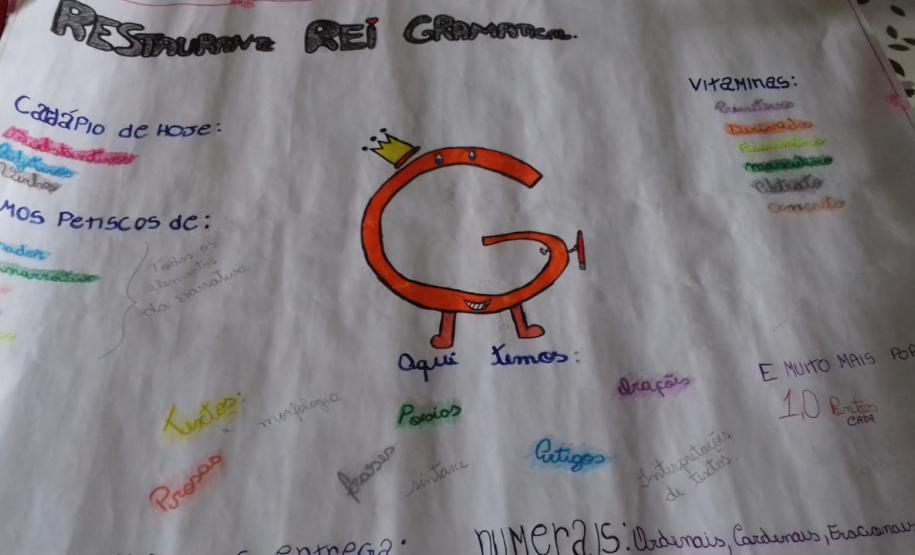 RESTAURANTE REI GRAMATICAL.
CARDÁPIO de HOJE:
Substantivos
Adjetivos
Verbos
MOS PETISCOS de:
narrativo
Todos os
elementos
da narrativa
VITAMINAS:
Primitivo
Derivado
Feminino
masculino
Abstrato
Concreto
Aqui temos:
Textos:
morfologia
Poesias
Orações
E MUITO MAIS POR
1,0 Pontos
CADA
Prosas
frases
sintaxe
Artigos
Interpretações
de textos.
entrega:
numerais: Ordinais, Cardinais, Fracionais